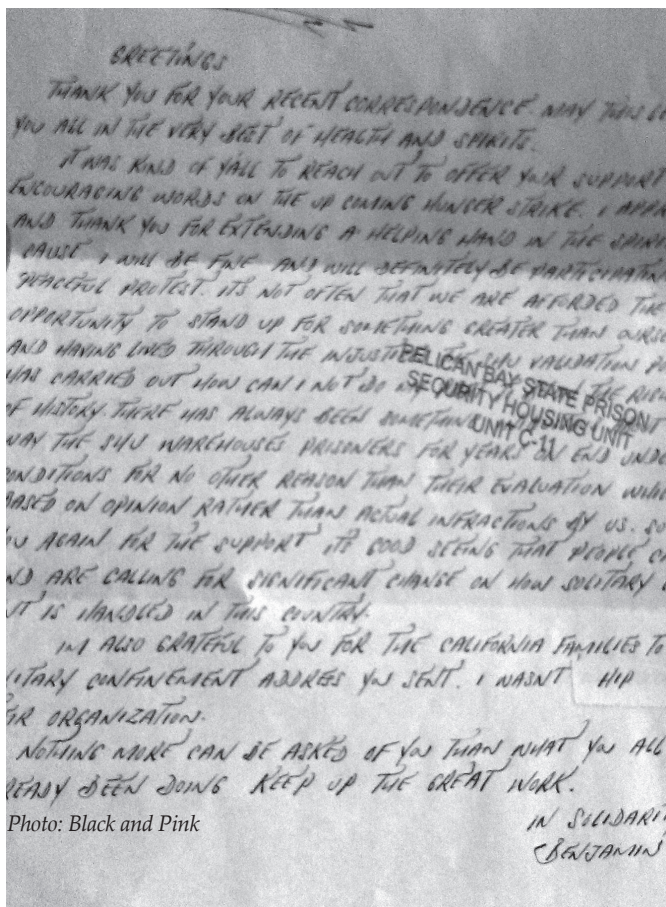 GREETINGS
THANK YOU FOR YOUR RECENT CORRESPONDENCE. MAY THIS
YOU ALL IN THE VERY BEST OF HEALTH AND SPIRITS.
IT WAS KIND OF YALL TO REACH OUT TO OFFER YOUR SUPPORT
ENCOURAGING WORDS ON THE UP COMING HUNGER STRIKE. I
AND THANK YOU FOR EXTENDING A HELPING HAND IN THE
CAUSE. I WILL BE FINE AND WILL DEFINITELY BE
PEACEFUL PROTEST. ITS NOT OFTEN THAT WE ARE AFFORDED THE
OPPORTUNITY TO STAND UP FOR SOMETHING GREATER THAN
AND HAVING LIVED THROUGH THE THE SHU VALIDATION
HAS CARRIED OUT HOW CAN I NOT DO THE
OF HISTORY. THERE HAS ALWAYS BEEN
PELICAN BAY STATE PRISON
SECURITY HOUSING UNIT
UNIT C-11
WAY THE SHU WAREHOUSES PRISONERS FOR YEARS ON END
CONDITIONS FOR NO OTHER REASON THAN THEIR EVALUATION
BASED ON OPINION RATHER THAN ACTUAL INFRACTIONS BY US.
AGAIN FOR THE SUPPORT ITS GOOD SEEING THAT PEOPLE
ARE CALLING FOR SIGNIFICANT CHANGE ON HOW SOLITARY
IS HANDLED IN THIS COUNTRY.
IM ALSO GRATEFUL TO YOU FOR THE CALIFORNIA FAMILIES TO
CONFINEMENT ADDRESS YOU SENT. I WASNT HIP
ORGANIZATION.
NOTHING MORE CAN BE ASKED OF YOU THAN WHAT YOU ALL
BEEN DOING KEEP UP THE GREAT WORK.
Photo: Black and Pink
IN
BENJAMIN